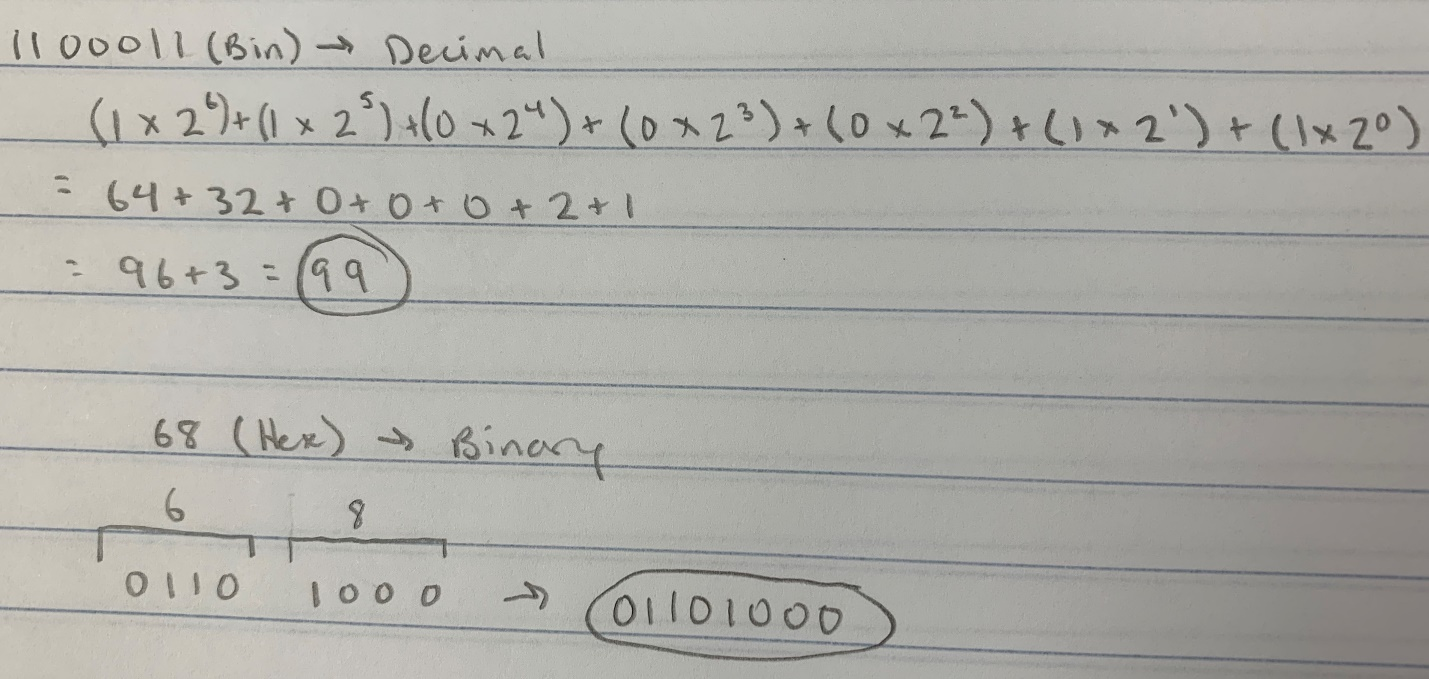 1100011 (Bin) → Decimal
(1 × 2⁶)+(1 × 2⁵)+(0 × 2⁴) + (0 × 2³) + (0 × 2²) + (1 × 2¹) + (1 × 2⁰)
= 64 + 32 + 0 + 0 + 0 + 2 + 1
= 96 + 3 = 99
68 (Hex) → Binary
6 8
0110 1000 → 01101000